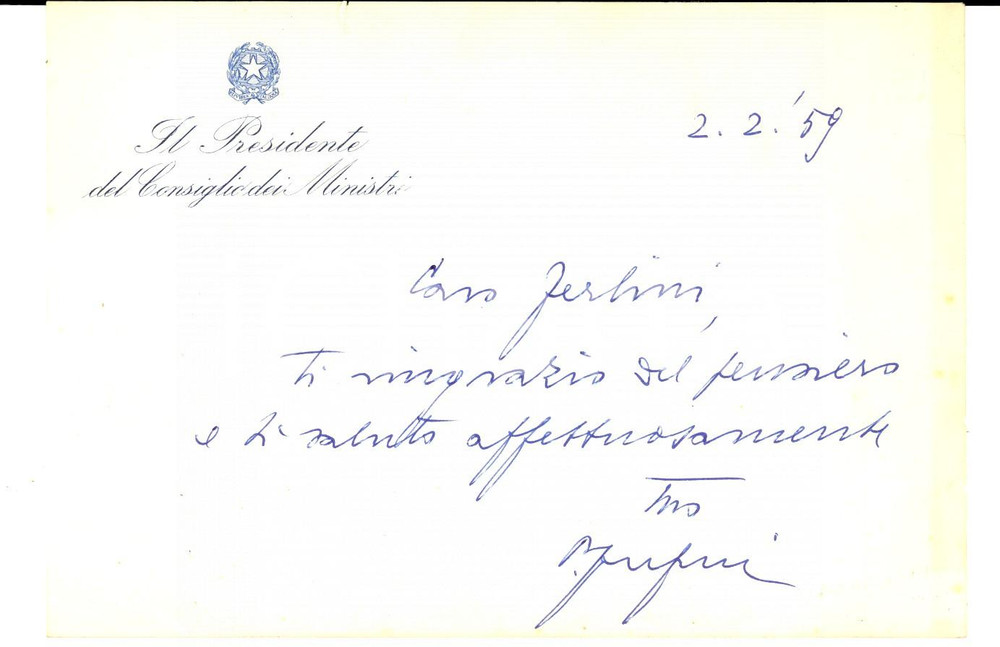 Il Presidente
del Consiglio dei Ministri
2. 2. '59
Caro
ti ringrazio del pensiero
e ti saluto affettuosamente
tuo